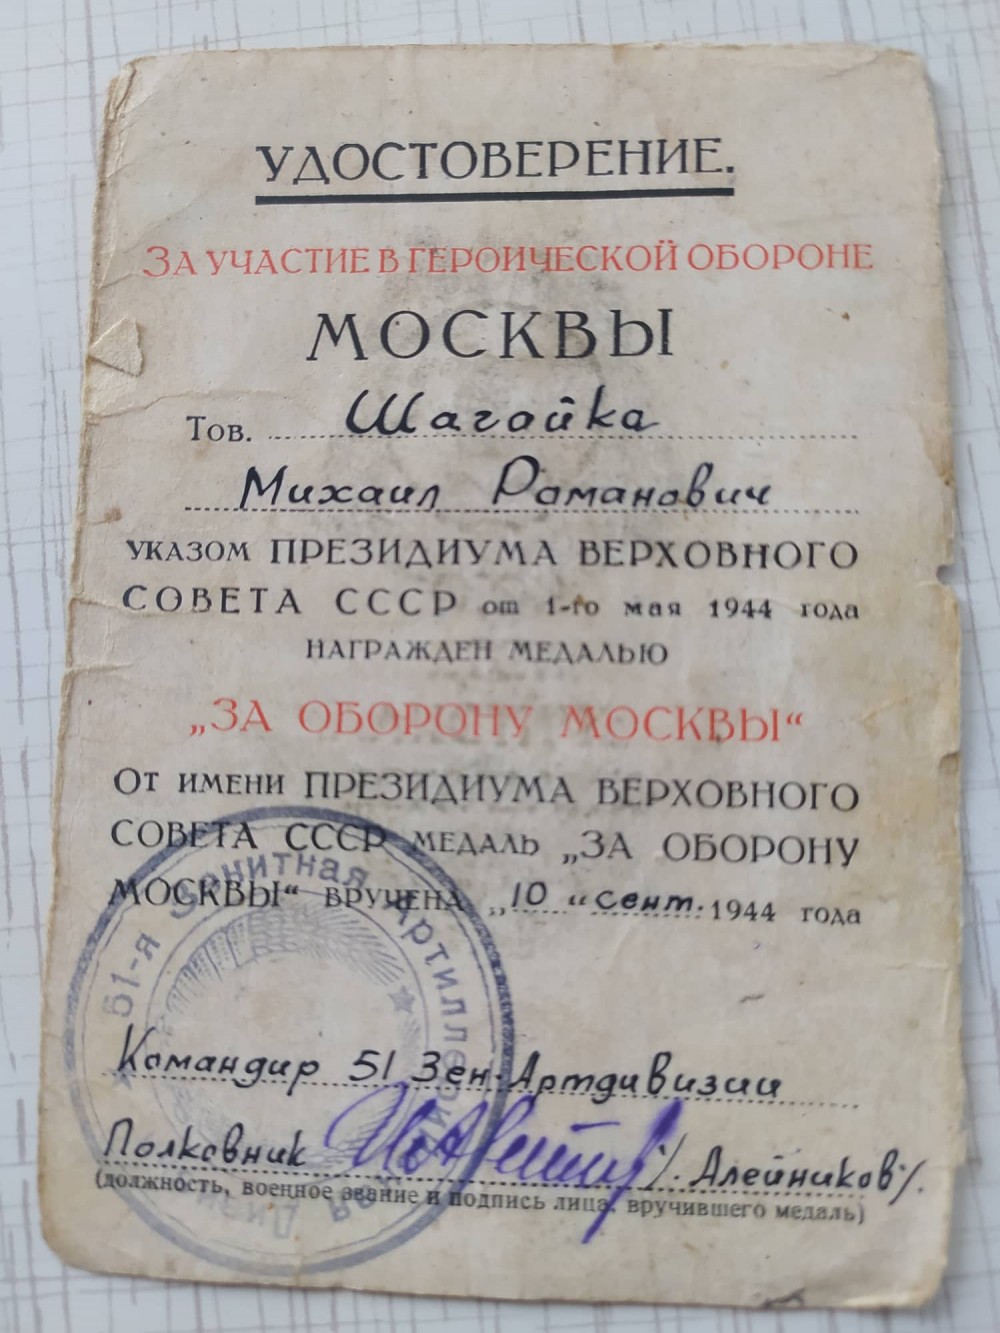 УДОСТОВЕРЕНИЕ.
ЗА УЧАСТИЕ В ГЕРОИЧЕСКОЙ ОБОРОНЕ
МОСКВЫ
Тов. Шагайка
Михаил Раманович
УКАЗОМ ПРЕЗИДИУМА ВЕРХОВНОГО
СОВЕТА СССР от 1-го мая 1944 года
НАГРАЖДЕН МЕДАЛЬЮ
„ЗА ОБОРОНУ МОСКВЫ“
ОТ ИМЕНИ ПРЕЗИДИУМА ВЕРХОВНОГО
СОВЕТА СССР МЕДАЛЬ „ЗА ОБОРОНУ
МОСКВЫ“ ВРУЧЕНА „10“ сент. 1944 года
51-я Зенитная Артиллерийская Дивизия
Командир 51 Зен. Артдивизии
Полковник /. Алейников/.
(должность, военное звание и подпись лица, вручившего медаль)